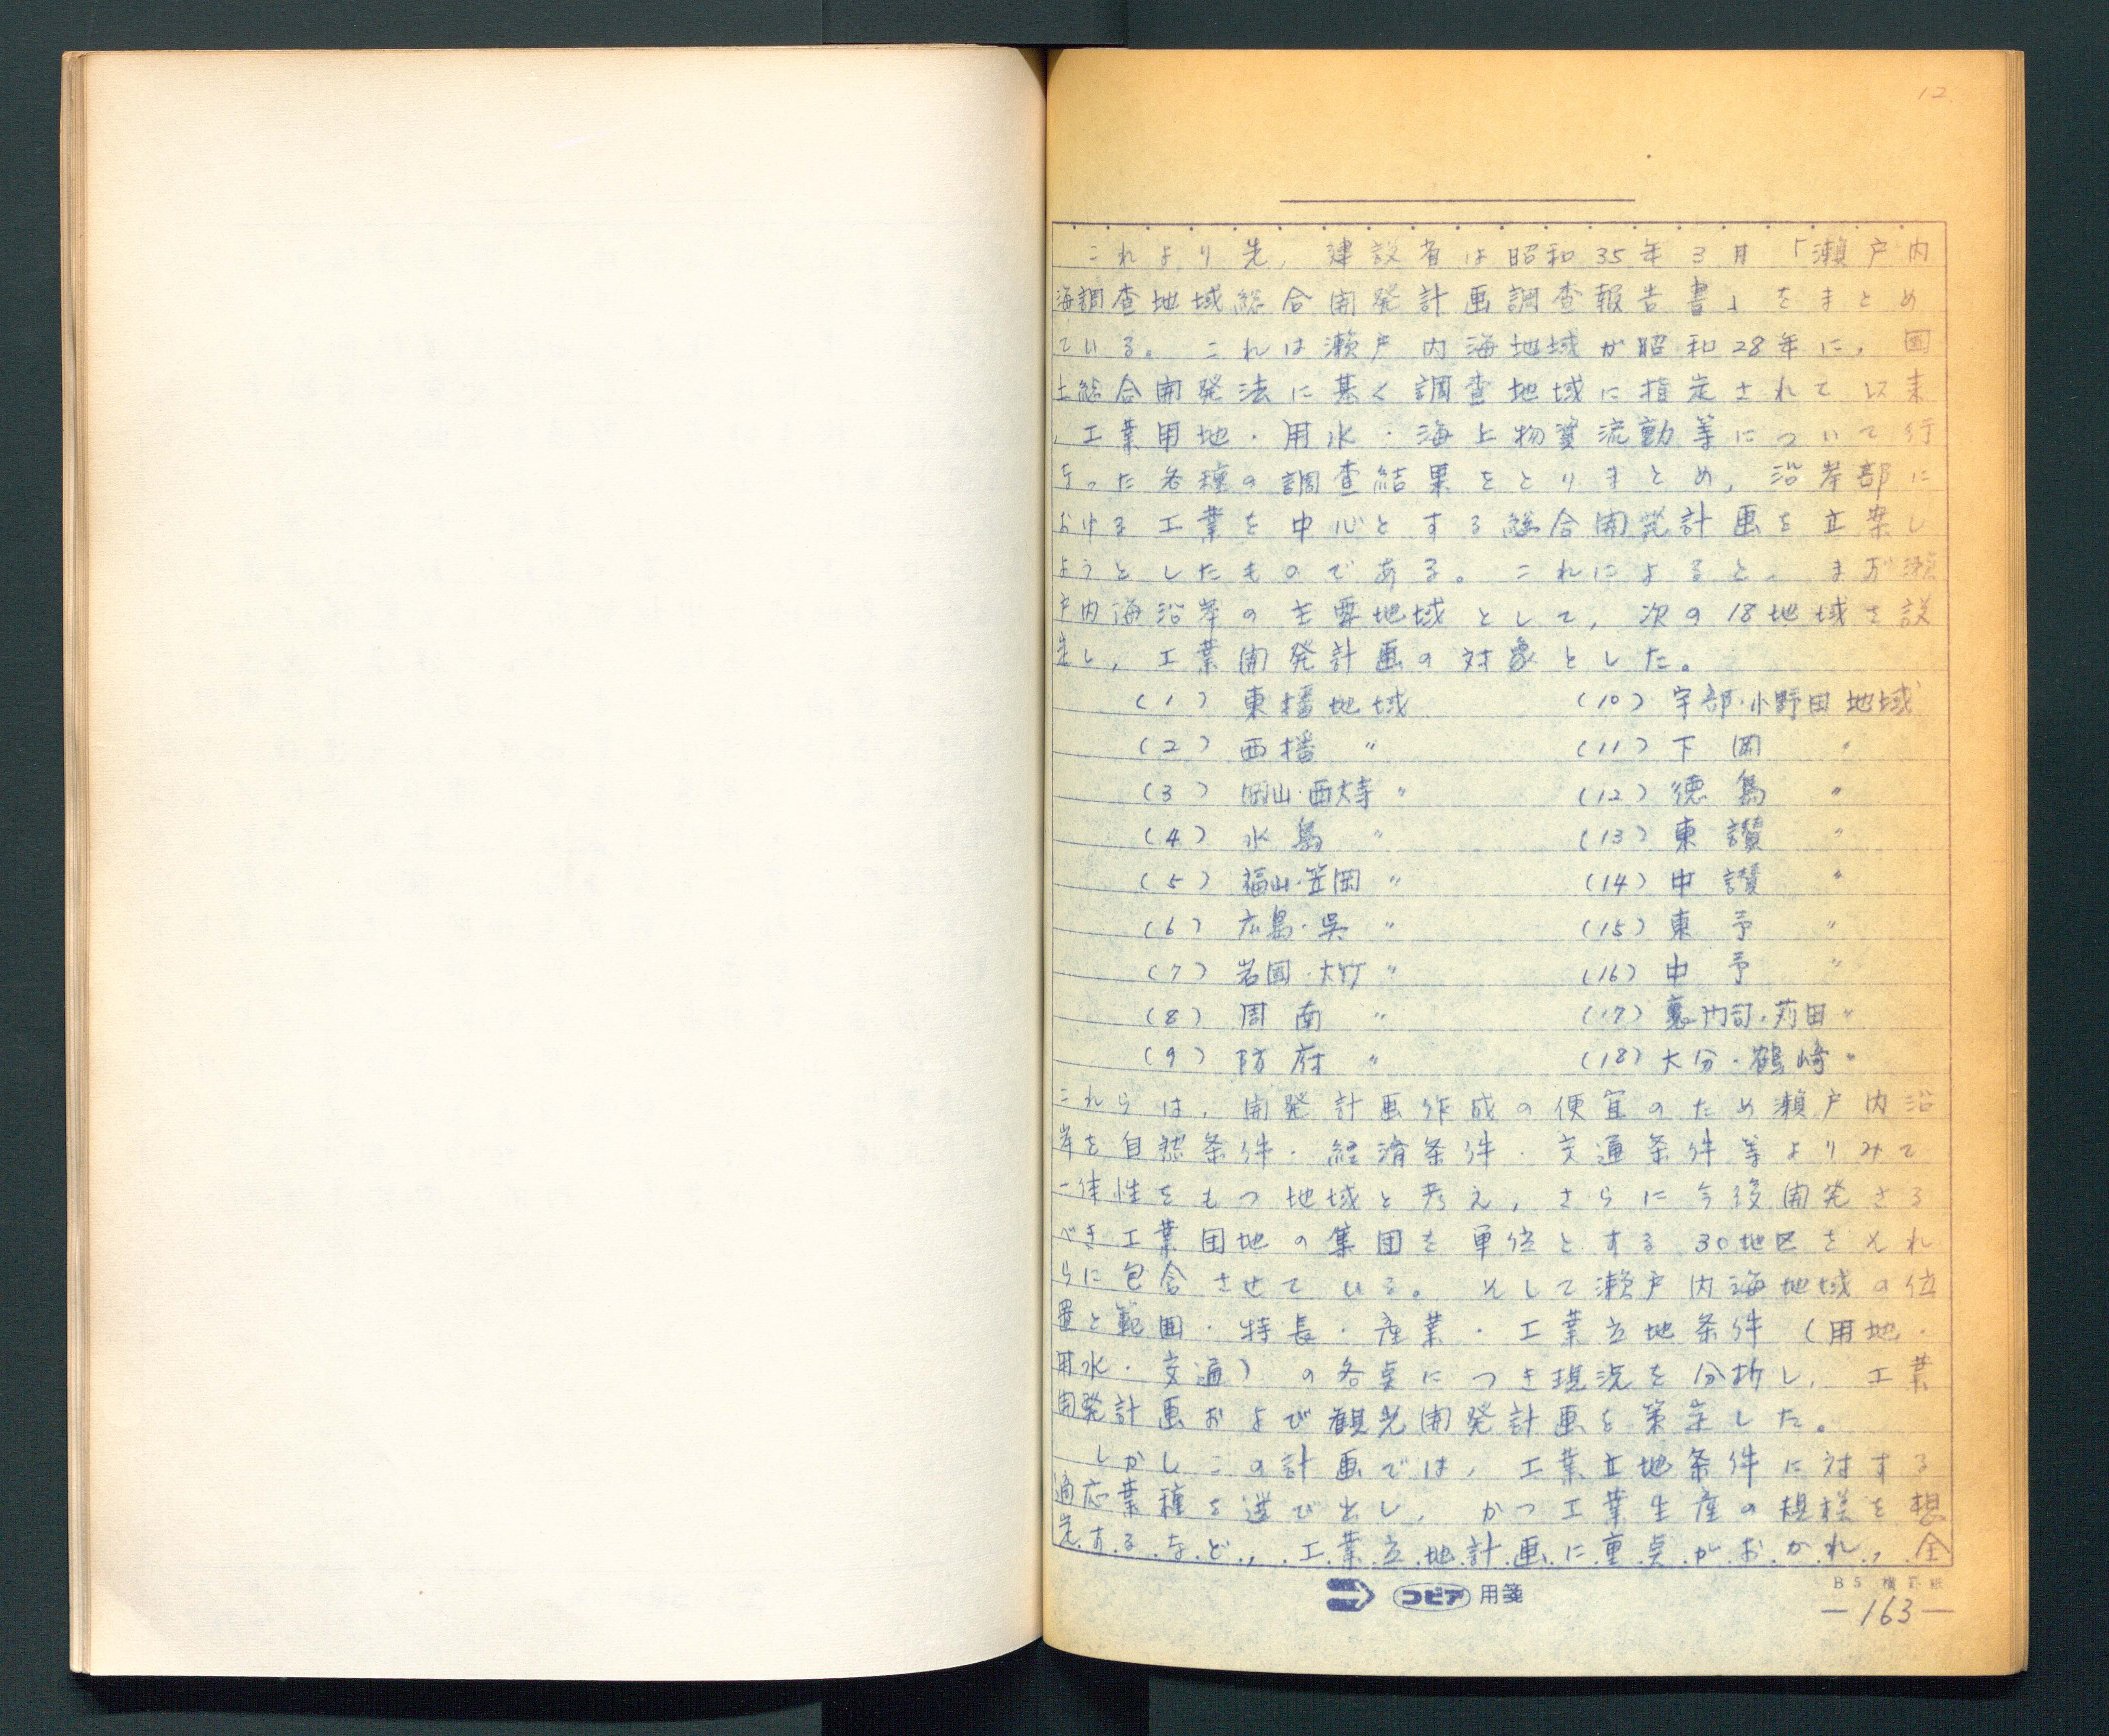 12
これより先，建設省は昭和35年3月「瀬戸内
海調査地域総合開発計画調査報告書」をまとめ
ている。これは瀬戸内海地域が昭和28年に，国
土総合開発法に基く調査地域に指定されて以来
，工業用地・用水・海上物資流動等について行
なった各種の調査結果をとりまとめ，沿岸部に
おける工業を中心とする総合開発計画を立案し
ようとしたものである。これによると，まず瀬
戸内海沿岸の主要地域として，次の18地域を設
定し，工業開発計画の対象とした。
(1) 東播地域 (10) 宇部・小野田地域
(2) 西播 〃 (11) 下関 〃
(3) 岡山・西大寺 〃 (12) 徳島 〃
(4) 水島 〃 (13) 東讃 〃
(5) 福山・笠岡 〃 (14) 中讃 〃
(6) 広島・呉 〃 (15) 東予 〃
(7) 岩国・大竹 〃 (16) 中予 〃
(8) 周南 〃 (17) 裏門司・苅田 〃
(9) 防府 〃 (18) 大分・鶴崎 〃
これらは，開発計画作成の便宜のため瀬戸内沿
岸を自然条件・経済条件・交通条件等よりみて
一体性をもつ地域と考え，さらに今後開発さる
べき工業団地の集団を単位とする30地区をそれ
らに包含させている。そして瀬戸内海地域の位
置と範囲・特長・産業・工業立地条件（用地・
用水・交通）の各点につき現況を分析し，工業
開発計画および観光開発計画を策定した。
しかしこの計画では，工業立地条件に対する
適応業種を選び出し，かつ工業生産の規模を想
定するなど，工業立地計画に重点がおかれ，全
コピア 用箋
B5 横罫紙
—163—